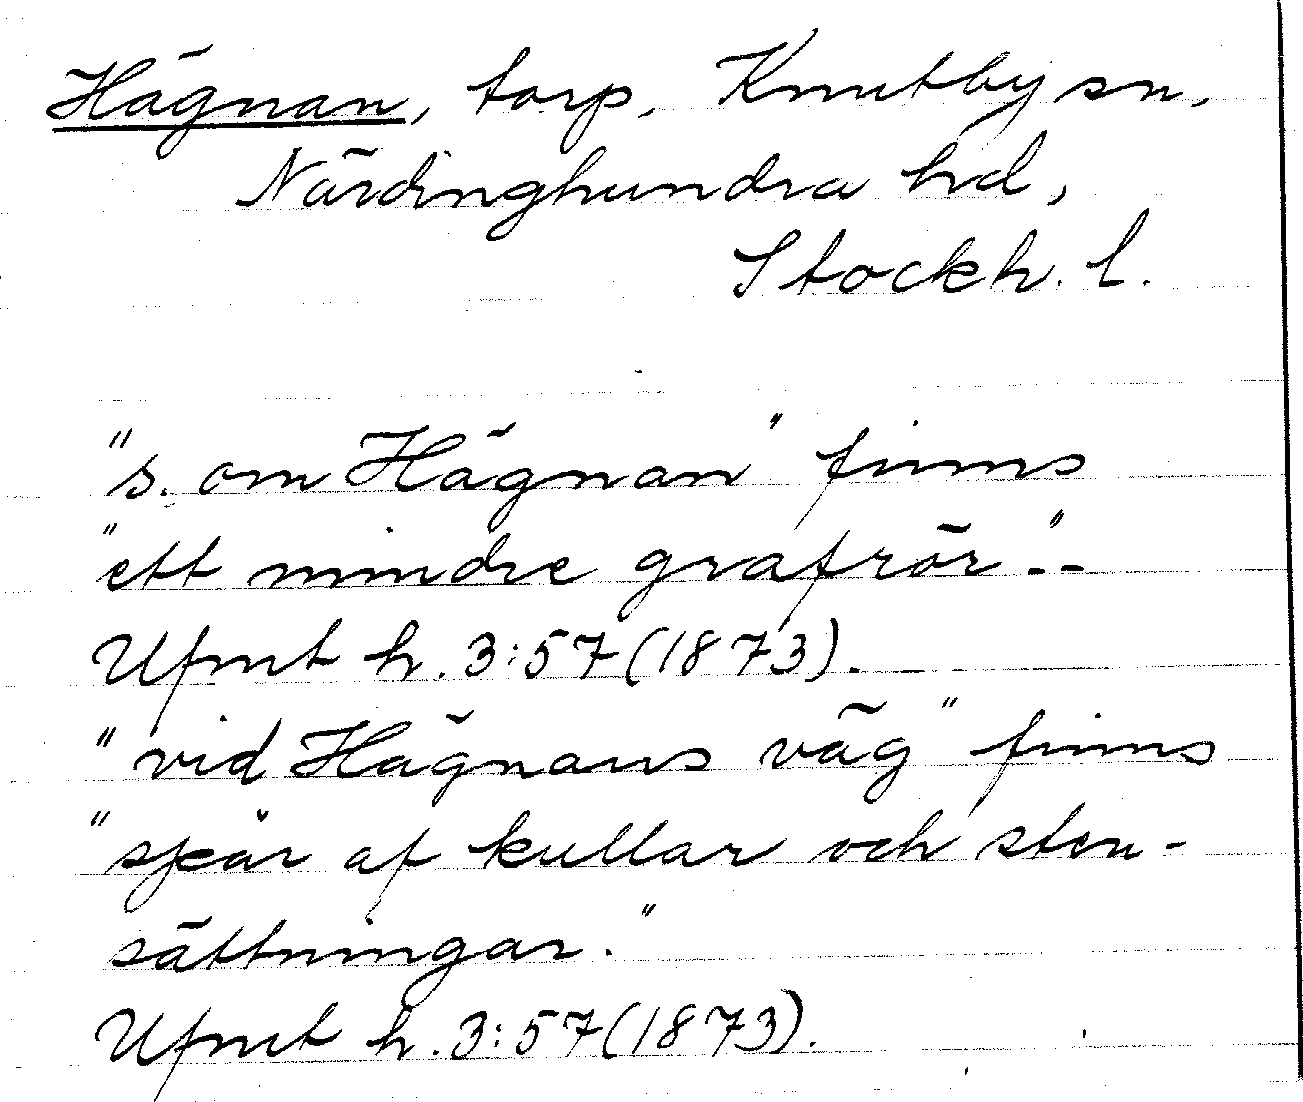 Hägnan, torp, Knutby sn,
Närdinghundra hd,
Stockh. l.
"s. om Hägnan" finns
"ett mindre grafrör".-
Ufmt h. 3:57 (1873).
"vid Hägnans väg" finns
"spår af kullar och sten-
sättningar."
Ufmt h. 3:57 (1873).